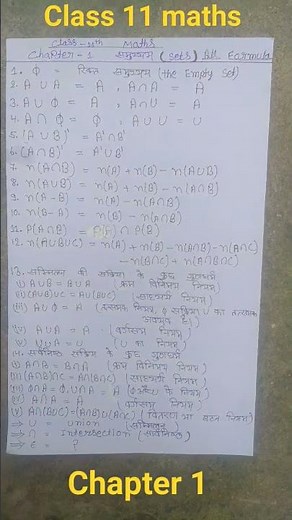 Class 11 maths
Class-11th Maths
Chapter-1 समुच्चय (Sets) All Formula
1. Φ = रिक्त समुच्चय (the Empty Set)
2. A∪A = A , A∩A = A
3. A∪Φ = A , A∩U = A
4. A∩Φ = Φ , A∪U = U
5. (A∪B)' = A'∩B'
6. (A∩B)' = A'∪B'
7. n(A∩B) = n(A) + n(B) - n(A∪B)
8. n(A∪B) = n(A) + n(B) - n(A∩B)
9. n(A-B) = n(A) - n(A∩B)
10. n(B-A) = n(B) - n(A∩B)
11. P(A∩B) = P(A)∩P(B)
12. n(A∪B∪C) = n(A) + n(B) - n(A∩B) - n(A∩C)
- n(B∩C) + n(A∩B∩C)
13. सम्मिलन की संक्रिया के कुछ गुणधर्म
i) A∪B = B∪A (क्रम विनिमय नियम)
ii) (A∪B)∪C = A∪(B∪C) (साहचर्य नियम)
iii) A∪Φ = A (तत्समक नियम, Φ संक्रिया U का तत्समक
अवयव है)
iv) A∪A = A (वर्गसम नियम)
v) U∪A = U (U का नियम)
14. सर्वनिष्ठ संक्रिया के कुछ गुणधर्म
i) A∩B = B∩A (क्रम विनिमय नियम)
ii) (A∩B)∩C = A∩(B∩C) (साहचर्य नियम)
iii) Φ∩A = Φ, U∩A = A (Φ और U के नियम)
iv) A∩A = A (वर्गसम नियम)
v) A∩(B∪C) = (A∩B)∪(A∩C) (वितरण या बंटन नियम)
⇒ U = union
⇒ ∩ = intersection (सर्वनिष्ठ)
⇒ ε = ?
Chapter 1